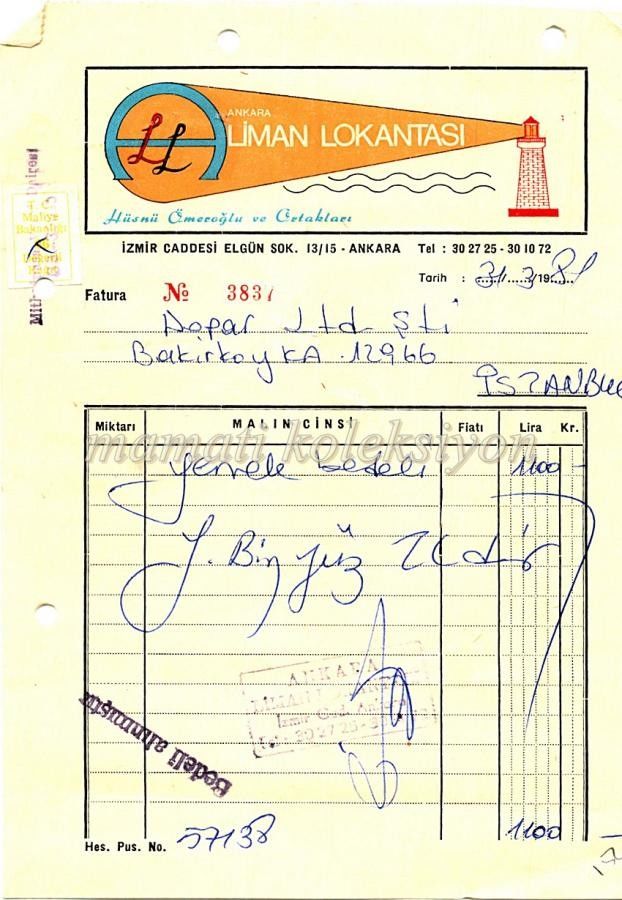 ANKARA
LİMAN LOKANTASI
LL
Hüsnü Ömeroğlu ve Ortakları
İZMİR CADDESİ ELGÜN SOK. 13/15 - ANKARA Tel : 30 27 25 - 30 10 72
Tarih : 31/3/1981
Fatura № 3837
Dopar Ltd Şti
Bakirkoy KA 12966
İSTANBUL
Miktarı MALIN CİNSİ Fiatı Lira Kr.
mamati koleksiyon
yemek bedeli 1100 -
Y. Bin yüz TL dir
ANKARA
LİMAN
İzmir Cad. Ankara
Tel: 30 27 25 - 
Bedeli alınmıştır
Hes. Pus. No. 57138 1100 -
T. C.
Maliye
Bakanlığı